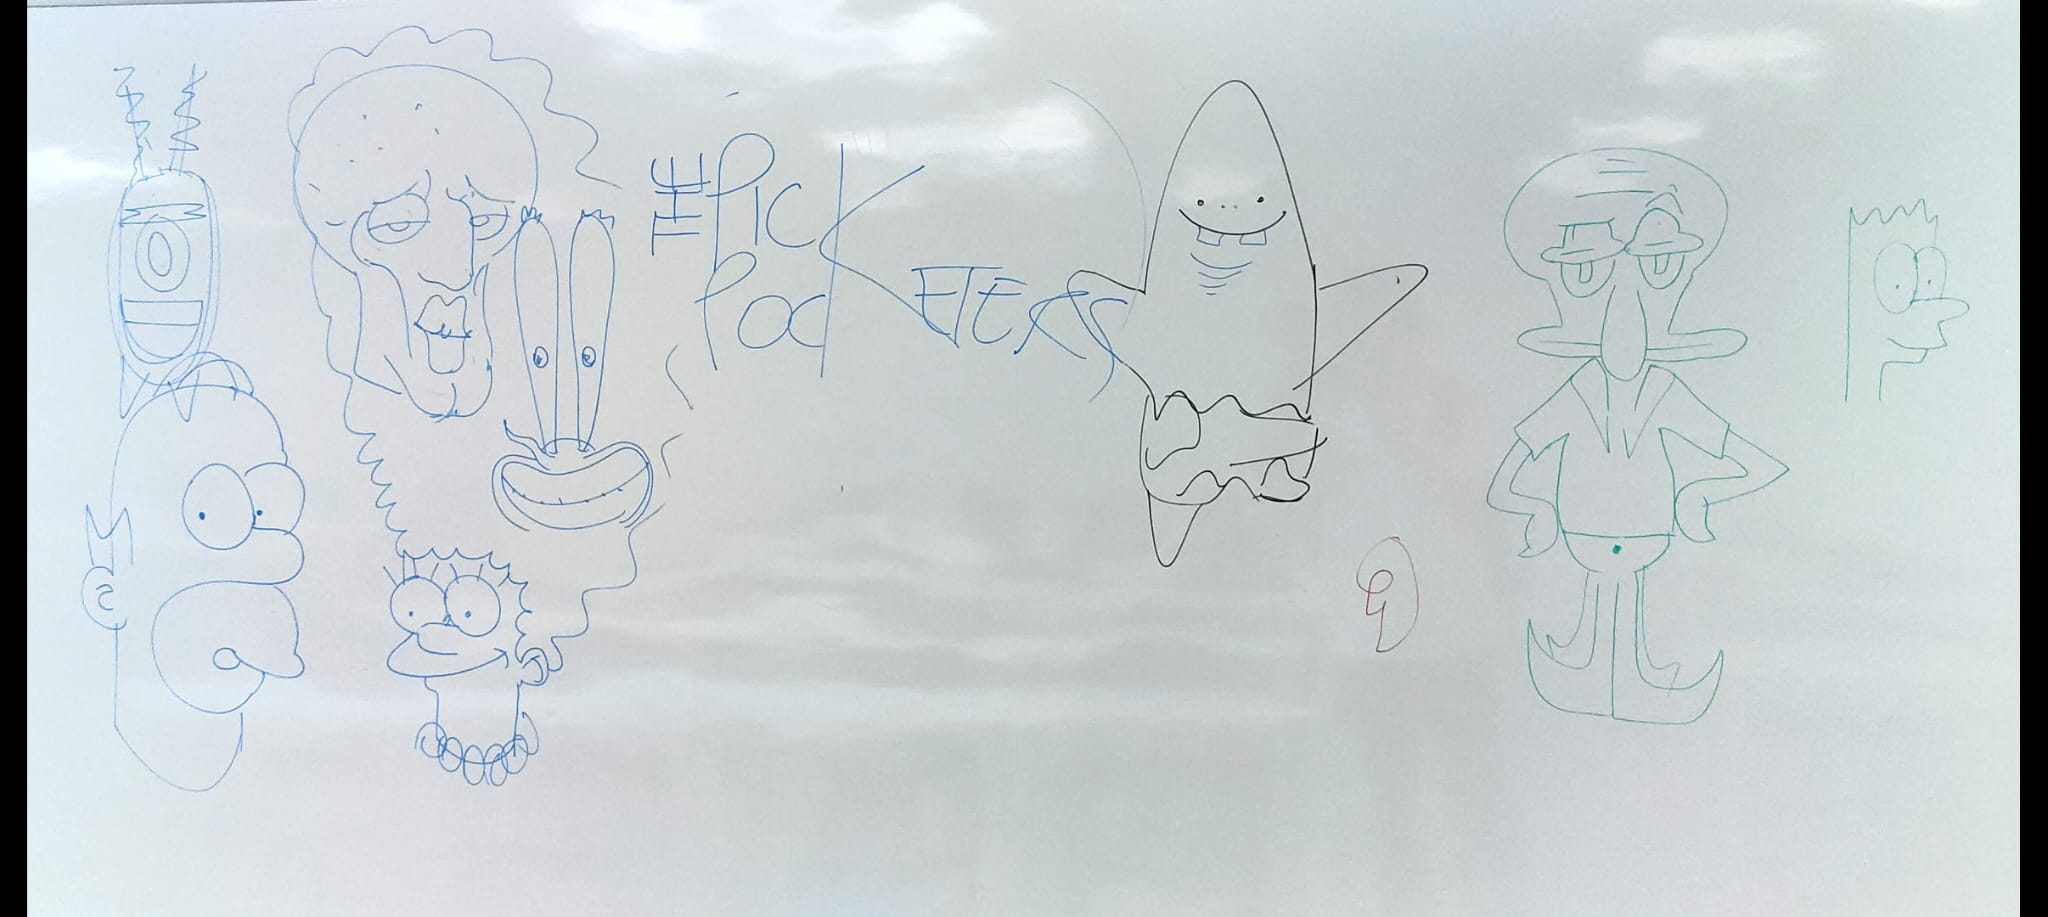 THE PICK
POCKETERS